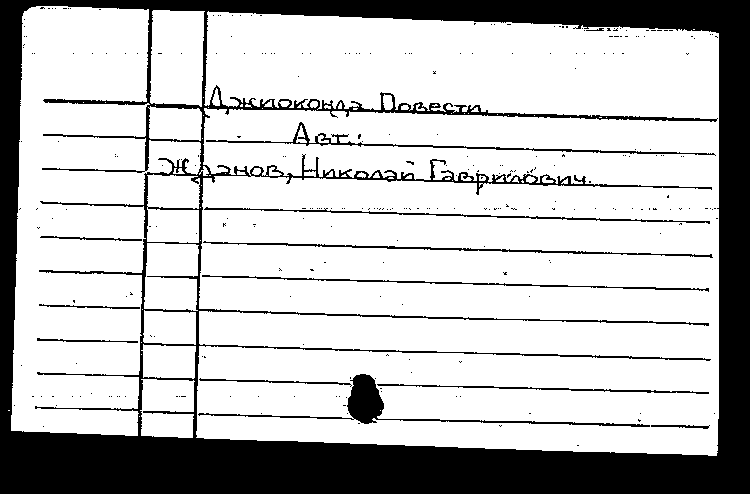 Джиоконда Повести.
Авт.:
Жданов, Николай Гаврилович.